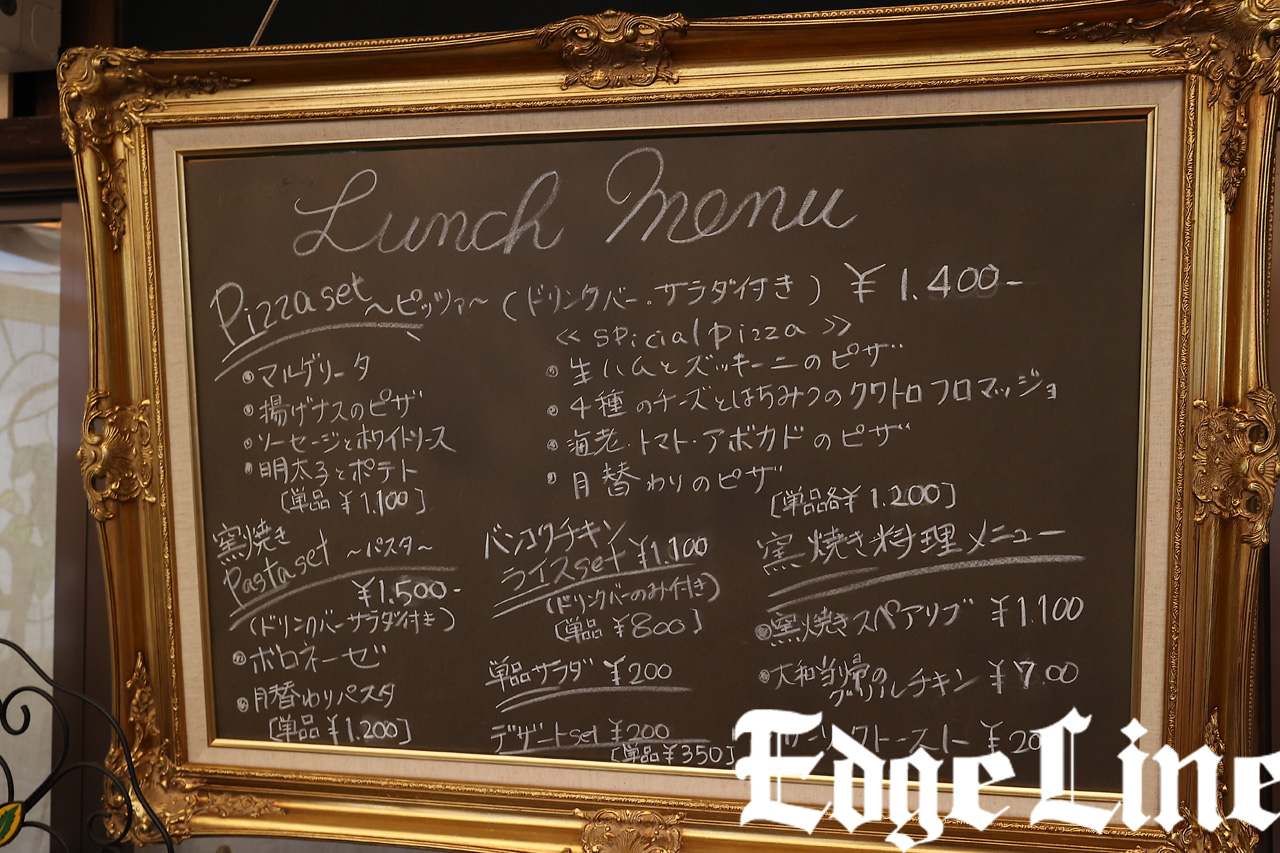 Lunch Menu
Pizza set ～ピッツァ～ (ドリンクバー・サラダ付き) ¥1.400-
・マルゲリータ
・揚げナスのピザ
・ソーセージとホワイトソース
・明太子とポテト
[単品¥1,100]
≪spicial pizza≫
・生ハムとズッキーニのピザ
・4種のチーズとはちみつのクワトロフロマッジョ
・海老・トマト・アボカドのピザ
・月替わりのピザ
[単品各¥1.200]
窯焼き
Pasta set ～パスタ～
¥1.500-
(ドリンクバーサラダ付き)
・ボロネーゼ
・月替わりパスタ
[単品¥1.200]
バンコクチキン
ライスset ¥1.100
(ドリンクバーのみ付き)
[単品¥800]
単品サラダ ¥200
デザートset ¥200
[単品¥350]
窯焼き料理メニュー
・窯焼きスペアリブ ¥1.100
・大和当帰の
グリルチキン ¥700
ガーリックトースト ¥20
Edge Line